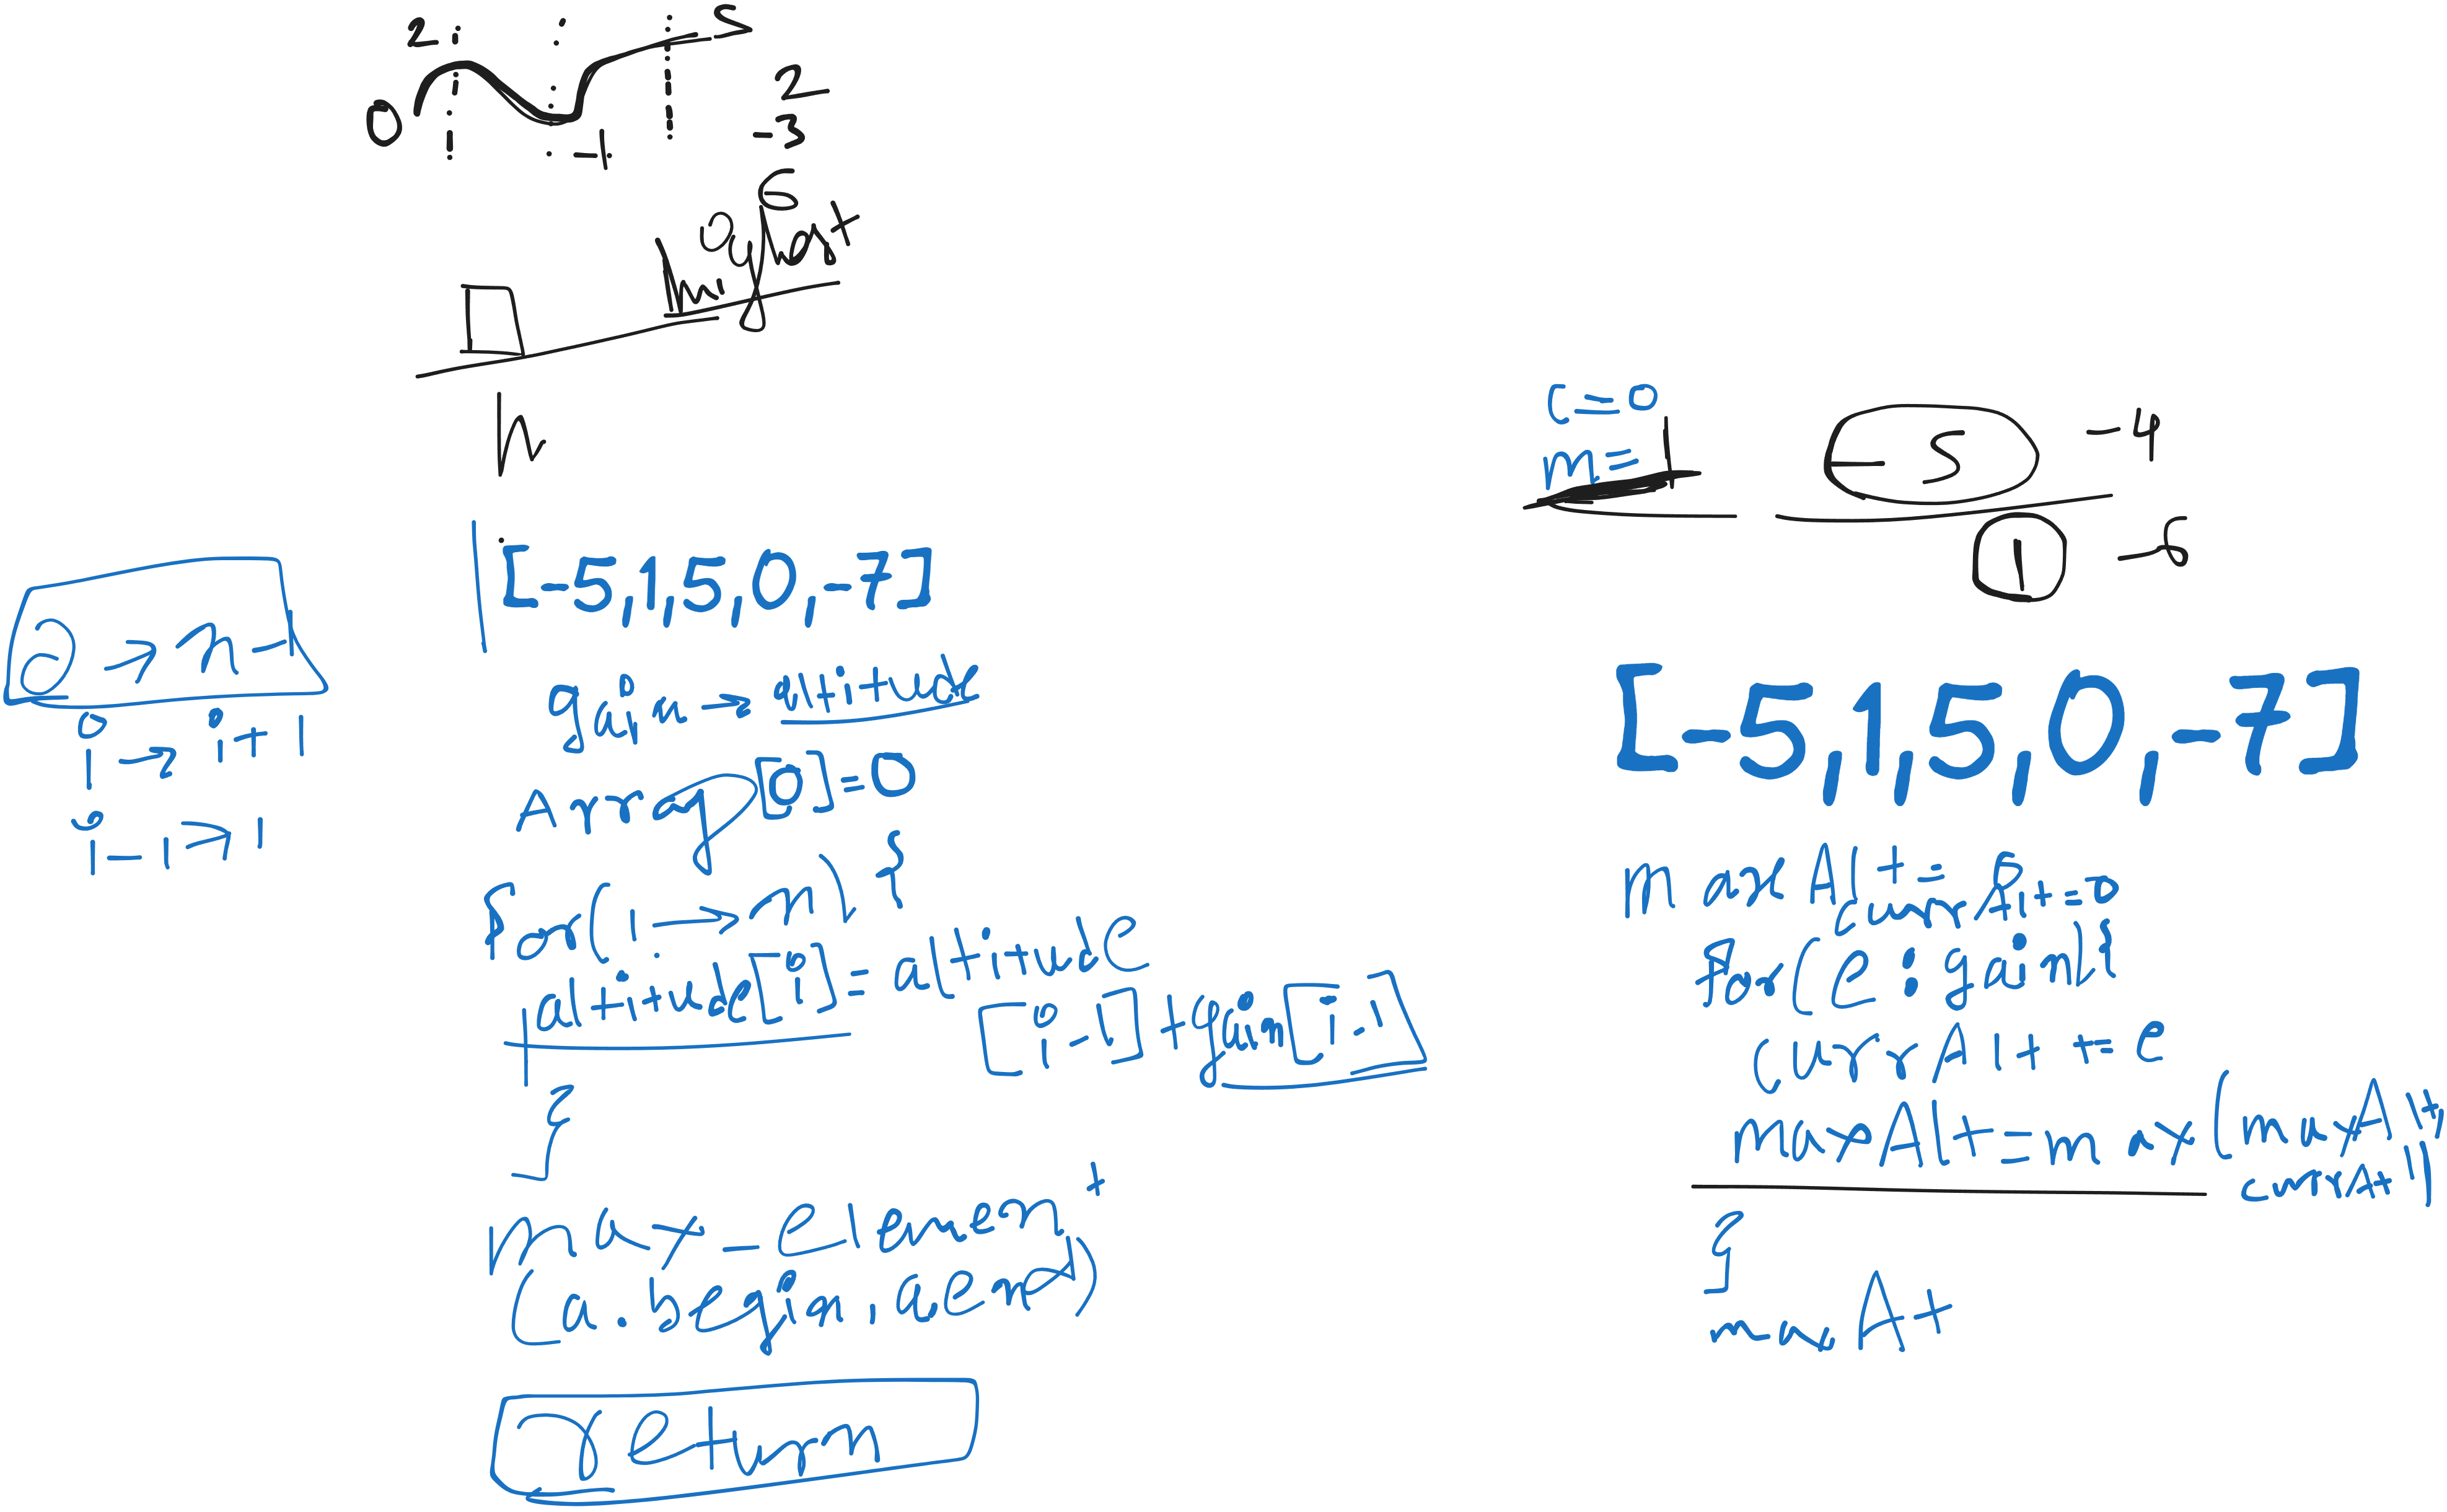 2
5
0
-1
2
-3
6
highest
h
[-5,1,5,0,-7]
0 → n-1
i → i+1
i-1 → i
gain → altitude
Array[0]=0
for(1 → n) {
altitude[i] = altitude
[i-1]+gain[i-1]
}
max_element
(a.begin, a.end)
return
c=0
m=1
-5
-4
1
-6
[-5,1,5,0,-7]
maxAlt=
currAlt=0
for(e : gain){
currAlt += e
maxAlt=max(maxAlt,
currAlt)
}
maxAlt